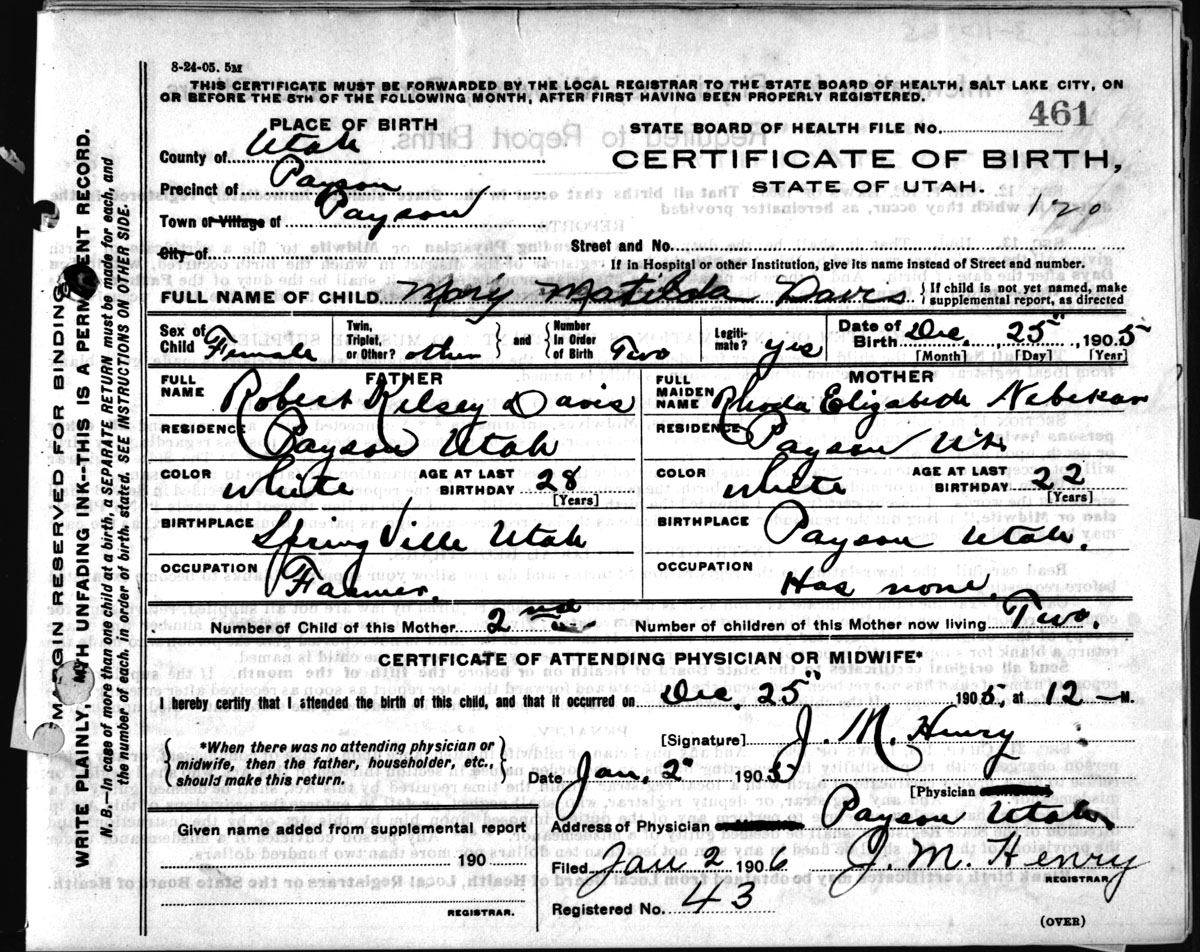 8-24-05. 5M
THIS CERTIFICATE MUST BE FORWARDED BY THE LOCAL REGISTRAR TO THE STATE BOARD OF HEALTH, SALT LAKE CITY, ON
OR BEFORE THE 5TH OF THE FOLLOWING MONTH, AFTER FIRST HAVING BEEN PROPERLY REGISTERED.
PLACE OF BIRTH
County of Utah
Precinct of Payson
Town or Village of Payson
City of
STATE BOARD OF HEALTH FILE No. 461
CERTIFICATE OF BIRTH,
STATE OF UTAH.
120
Street and No.
If in Hospital or other Institution, give its name instead of Street and number.
FULL NAME OF CHILD Mary Matilda Davis { If child is not yet named, make supplemental report, as directed
Sex of Child Female
Twin, Triplet, or Other? other } and { Number In Order of Birth Two
Legitimate? yes
Date of Birth Dec. 25", 1905
[Month] [Day] [Year]
FATHER
FULL NAME Robert Kelsey Davis
RESIDENCE Payson Utah
COLOR White AGE AT LAST BIRTHDAY 28 [Years]
BIRTHPLACE SpringVille Utah
OCCUPATION Farmer.
MOTHER
FULL MAIDEN NAME Rhoda Elizabeth Nebekar
RESIDENCE Payson Ut.
COLOR White AGE AT LAST BIRTHDAY 22 [Years]
BIRTHPLACE Payson Utah.
OCCUPATION Has none.
Number of Child of this Mother 2nd Number of children of this Mother now living Two.
CERTIFICATE OF ATTENDING PHYSICIAN OR MIDWIFE*
I hereby certify that I attended the birth of this child, and that it occurred on Dec. 25" 1905, at 12 — M.
*When there was no attending physician or
midwife, then the father, householder, etc.,
should make this return.
[Signature] J. M. Henry
Date Jan, 2" 1905
[Physician
Address of Physician Payson Utah
Given name added from supplemental report
190
REGISTRAR.
Filed Jan 2 1906 J. M. Henry
REGISTRAR.
Registered No. 43
(OVER)
MARGIN RESERVED FOR BINDING
WRITE PLAINLY, WITH UNFADING INK—THIS IS A PERMANENT RECORD.
N. B.—In case of more than one child at a birth, a SEPARATE RETURN must be made for each, and
the number of each, in order of birth, stated. SEE INSTRUCTIONS ON OTHER SIDE.